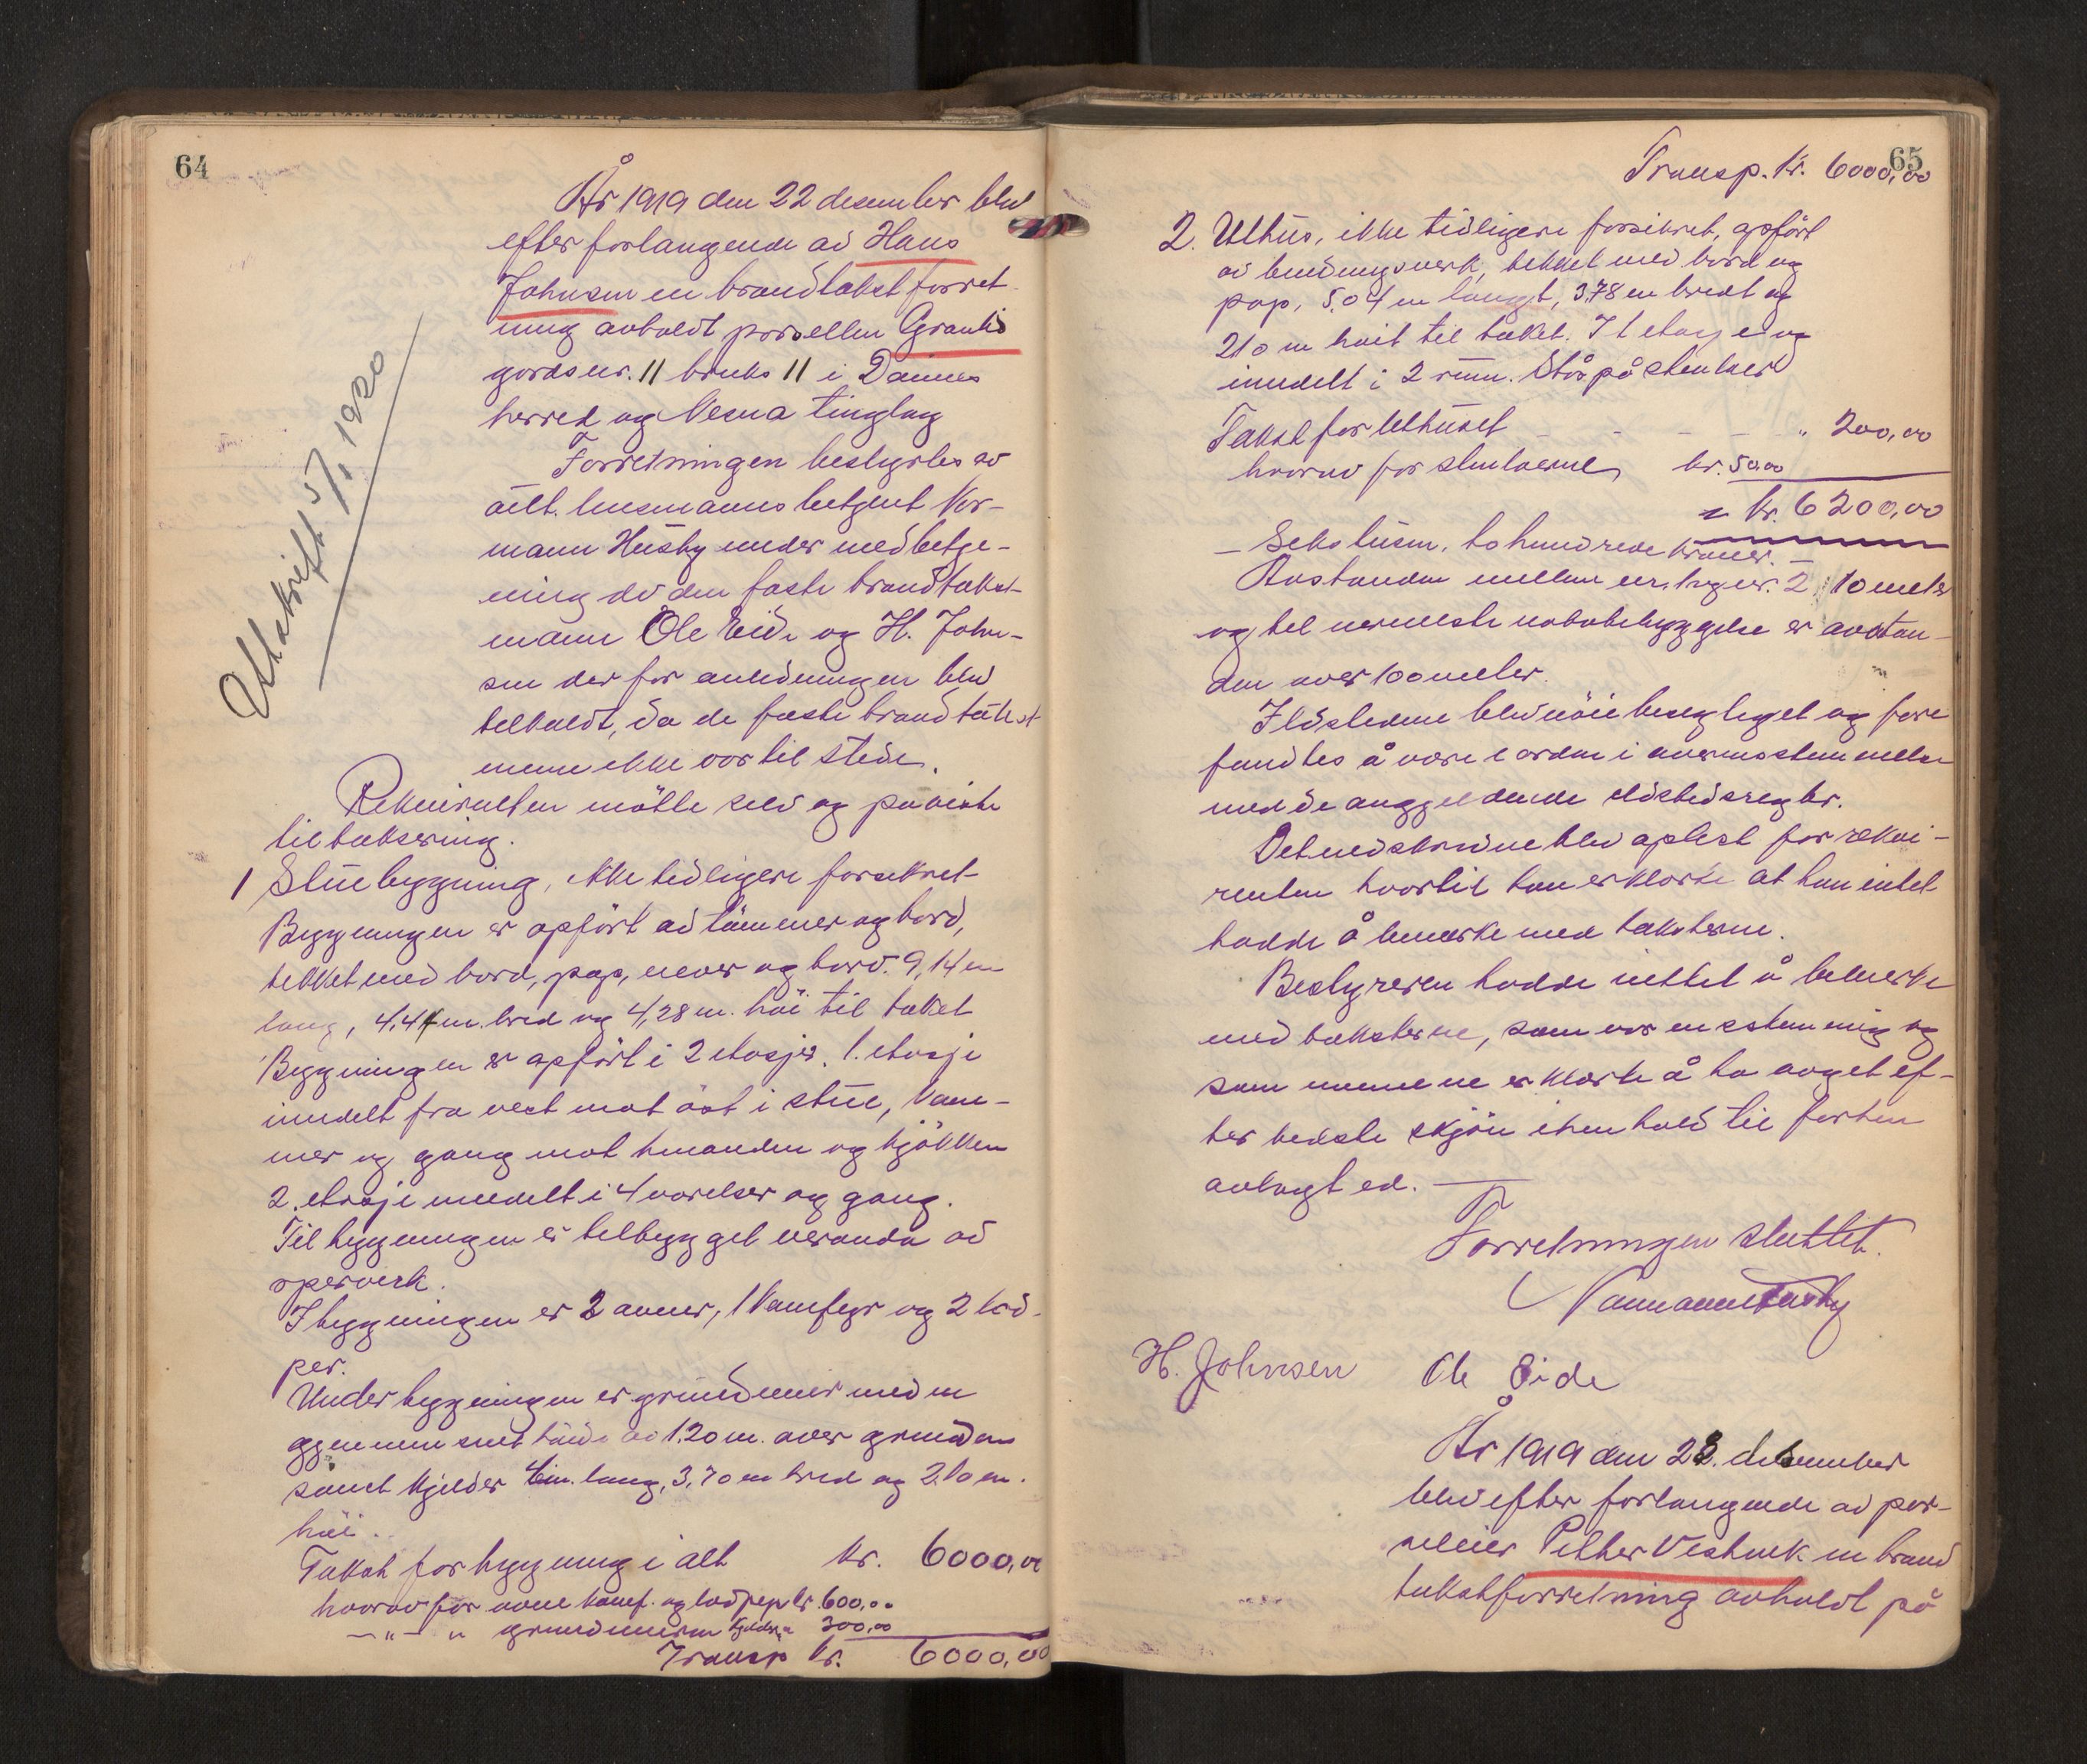 64
År 1919 den 22 desember blev
efter forlangende av Hans
Johnsen en brandtakstforret-
ning avholdt parsellen Granli
gårdsnr. 11 bruks 11 i Dønnes
herred og Nesna tinglag
Forretningen bestyrtes av
lensmannsbetjent Nor-
mann Husby under medbetje-
ning av den faste brandtakst-
mann Ole Eide og H. John-
sen der for anledningen blev
tilkaldt, da de faste brandtakst
menn ikke var til stede.
Utskrift 5/1 1920
Rekvirenten møtte selv og påviste
til taksering.
1 Stuebygning, ikke tidligere forsikret
Bygningen er opført av tømmer og bord,
tekket med bord, pap, never og torv. 9,14 m
lang, 4,44 m. bred og 4,28 m. høi til taket
Bygningen er opført i 2 etasjer. 1. etasje
inndelt fra vest mot øst i stue, kam-
mer og gang mot hinanden og kjøkken
2. etasje inndelt i 4 værelser og gang.
Til bygningen er tilbygget veranda av
sperverk.
I bygningen er 2 ovner, 1 kamfyr og 2 lod-
per.
Under bygningen er grundmur med en
ggennemsnitshøide av 1.20 m. over grunden
samt kjelder 4 m. lang, 3,70 m bred og 2.10 m.
høi.
Takst for bygning i alt kr. 6000,00
hvorav for ovne komf. og lodpip kr. 600,00
— " — " grundmuren kjelder 300,00
Transp kr. 6000,00
65
Transp. kr. 6000,00
2. Uthus, ikke tidligere forsikret, opført
av bindingsverk, tekket med bord og
pap, 5.04 m langt, 3,78 m bredt og
210 m høit til taket. I 1 etasje og
inndelt i 2 rum. Står på stenkar
Takst for uthuset — — — " 200,00
hvorav for stenkarene kr. 50.00
= kr. 6200,00
— Seks tusen, to hundrede kroner. —
Avstanden mellem nr. 1 og nr. 2 10 meter
og til nermeste nabobebyggelse er avstan-
den over 100 meter.
Ildstedene blev nøie besegtiget og fore
fundtes å være i orden i overensstemmelse
med de angjeldende ildstedsregler.
Det nedskrevne blev oplest for rekvi-
renten hvortil han erklærte at han intet
hadde å bemerke med taksterne.
Bestyreren hadde intet å bemerke
med taksterne, som var enstemmig og
som mennene erklærte å ha avget ef-
ter bedste skjøn i henhold til forhen
avlagt ed. —
Forretningen sluttet.
Normann Husby
H. Johnsen Ole Eide
År 1919 den 23. desember
blev efter forlangende av par-
seleier Petter Vestvik en brand
takstforretning avholdt på